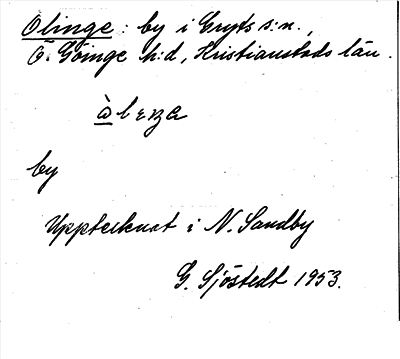 Olinge: by i Gryts s:n.,
Ö. Göinge h:d, Kristianstads län.
by
Upptecknat i N. Sandby
G. Sjöstedt 1953.